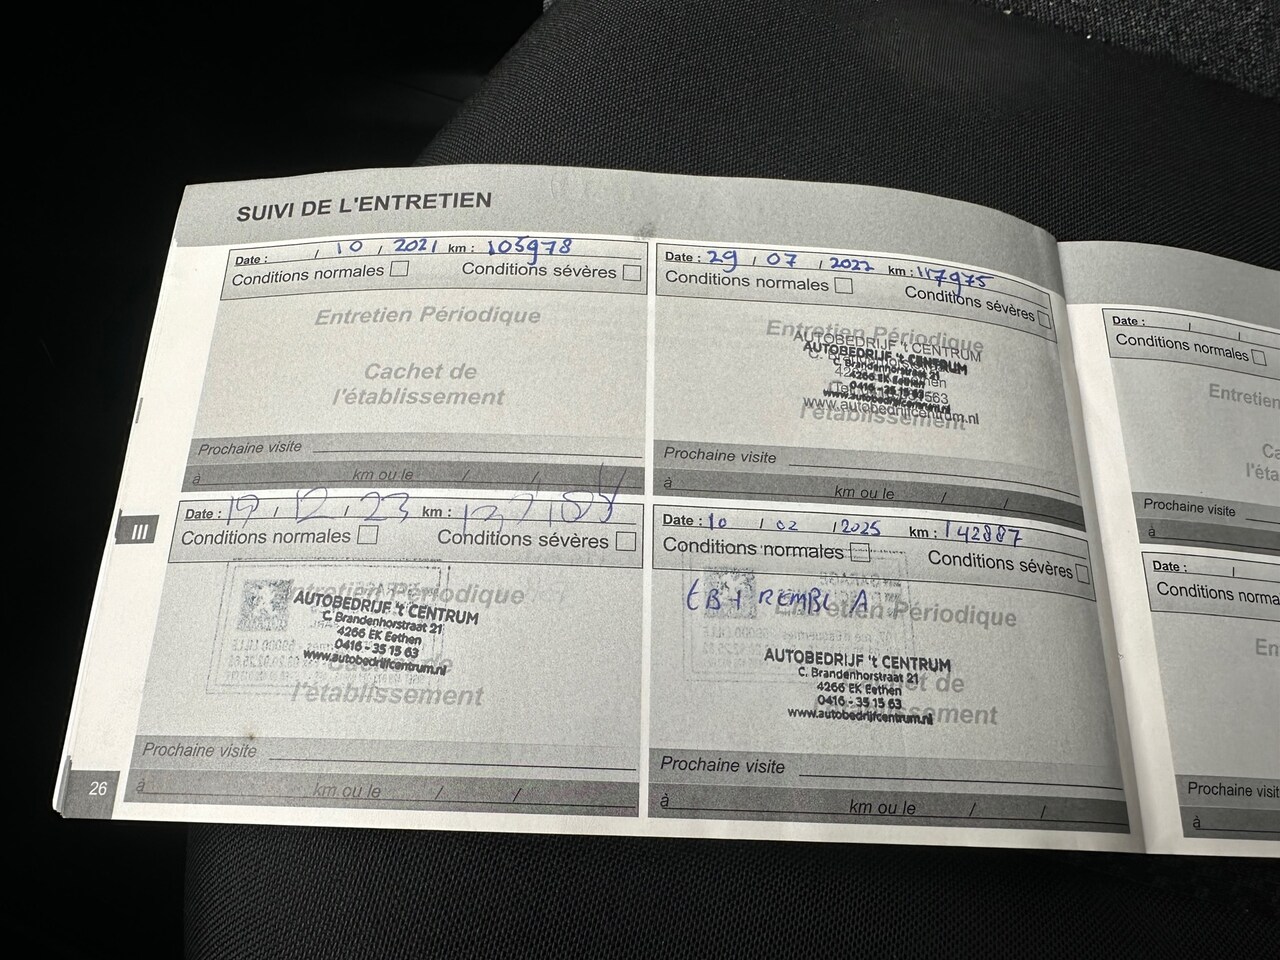 SUIVI DE L'ENTRETIEN
Date : / 10 / 2021 km : 105978
Conditions normales Conditions sévères
Entretien Périodique
Cachet de
l'établissement
Prochaine visite
à km ou le / /
Date : 29 / 07 / 2022 km : 117975
Conditions normales Conditions sévères
Entretien Périodique
AUTOBEDRIJF 't CENTRUM
AUTOBEDRIJF 't CENTRUM
C. Brandenhorstraat 21
4266 EK Eethen
0416 - 35 15 63
www.autobedrijfcentrum.nl
www.autobedrijfcentrum.nl
l'établissement
Prochaine visite
à km ou le / /
Date : 19 / 12 / 23 km :
Conditions normales Conditions sévères
Entretien Périodique
AUTOBEDRIJF 't CENTRUM
C. Brandenhorstraat 21
4266 EK Eethen
0416 - 35 15 63
www.autobedrijfcentrum.nl
l'établissement
Prochaine visite
à km ou le / /
Date : 10 / 02 / 2025 km : 142887
Conditions normales Conditions sévères
REMBL A
Entretien Périodique
AUTOBEDRIJF 't CENTRUM
C. Brandenhorstraat 21
4266 EK Eethen
0416 - 35 15 63
www.autobedrijfcentrum.nl
Cachet de
l'établissement
Prochaine visite
à km ou le / /
III
26
Date : / /
Conditions normales
Entretien
Ca
l'éta
Prochaine visite
à
Date : /
Conditions norma
En
Prochaine visit
à